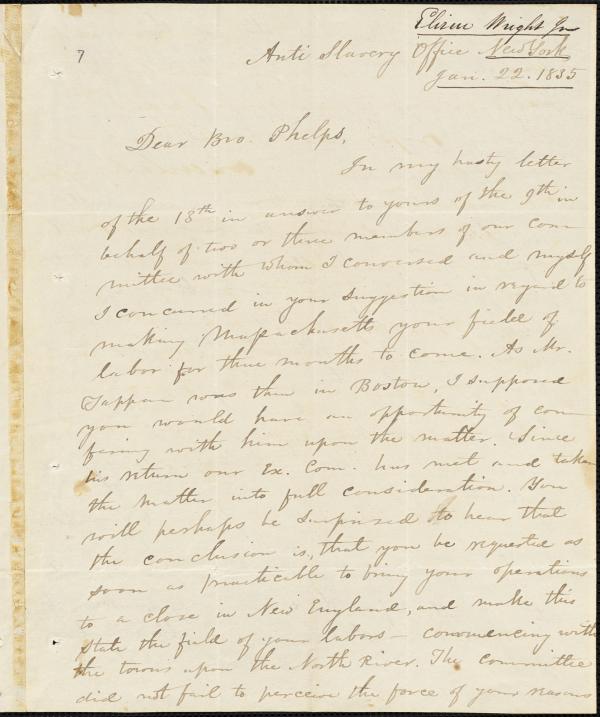 Elizur Wright Jr
7
Anti Slavery Office New York
Jan. 22. 1835
Dear Bro. Phelps,
In my hasty letter
of the 18th in answer to yours of the 9th in
behalf of two or three members of our com-
mittee with whom I conversed and myself
I concurred in your suggestion in regard to
making Massachusetts your field of
labor for three months to come. As Mr.
Tappan was then in Boston, I supposed
you would have an opportunity of con-
fering with him upon the matter. Since
his return our Ex. Com. has met and taken
the matter into full consideration. You
will perhaps be surprised to hear that
the conclusion is, that you be requested as
soon as practicable to bring your operations
to a close in New England, and make this
state the field of your labors – commencing with
the towns upon the North River. The committee
did not fail to perceive the force of your reasons